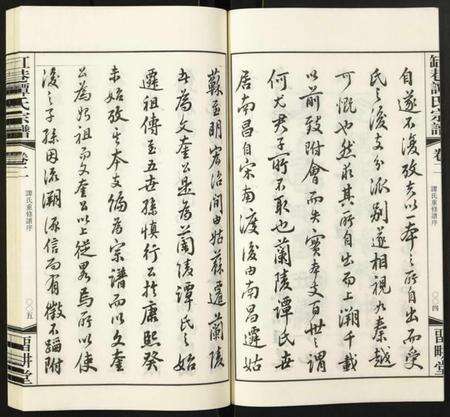 缸巷譚氏宗譜 卷二 譚氏重修譜序 〇〇四
自遂不復攷矣以一本之所自出而受
氏之後支分派別遂相視 秦越
可慨也然求其所自出而上溯千載
以前致附會而失實本支百世之謂
何大君子所不取也蘭陵譚氏世
居南昌自宋南渡後由南昌遷姑
蘇至明宏治間由姑蘇遷蘭陵
為文奎公是為蘭陵譚氏之始
遷祖傳至五世孫慎行公於康熙癸
未始攷其本支編為宗譜而以文奎
公為始祖而文奎公以上從畧焉所以使
後之子孫因流溯源信而有徵不蹈附
缸巷譚氏宗譜 卷二 譚氏重修譜序 〇〇五